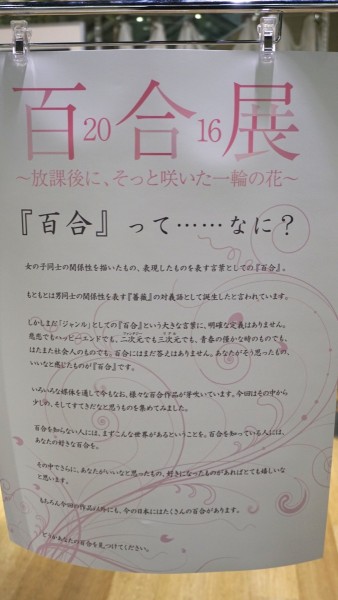 百合展
2016
～放課後に、そっと咲いた一輪の花～
『百合』って……なに？
女の子同士の関係性を描いたもの、表現したものを表す言葉としての『百合』。
もともとは男同士の関係性を表す『薔薇』の対義語として誕生したと言われています。
しかしまだ「ジャンル」としての『百合』という大きな言葉に、明確な定義はありません。
悲恋でもハッピーエンドでも、二次元でも三次元でも、青春の僅かな時のものでも、
はたまた社会人のものでも、百合にはまだ答えはありません。あなたがそう思ったもの、
いいなと感じたものが『百合』です。
いろいろな媒体を通して今もなお、様々な百合作品が芽吹いています。今回はその中から
少しの、そしてすてきだなと思うものを集めてみました。
百合を知らない人には、まずこんな世界があるということを。百合を知っている人には、
あなたの好きな百合を。
その中でさらに、あなたがいいなと思ったもの、好きになったものがあればとても嬉しいな
と思います。
もちろん今回の作品以外にも、今の日本にはたくさんの百合があります。
どうかあなたの百合を見つけてください。